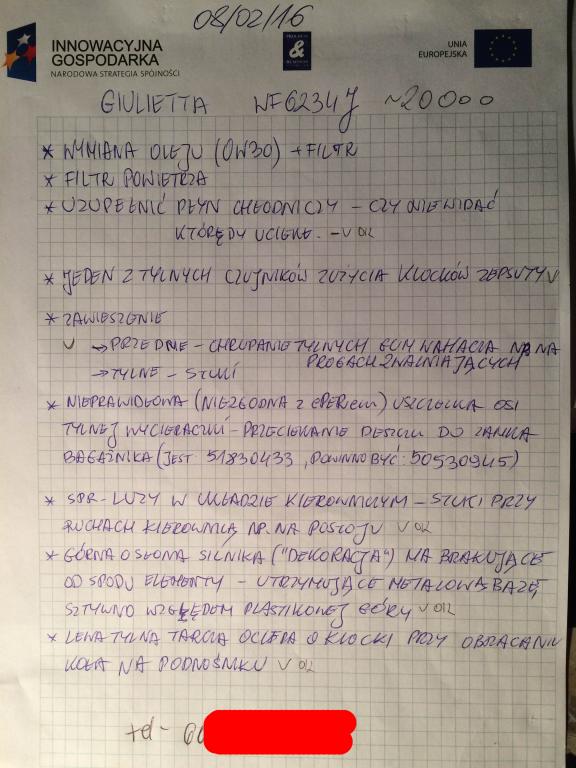 08/02/16
INNOWACYJNA
GOSPODARKA
NARODOWA STRATEGIA SPÓJNOŚCI
UNIA
EUROPEJSKA
GIULIETTA WF6234J ~20000
* WYMIANA OLEJU (0W30) + FILTR
* FILTR POWIETRZA
* UZUPEŁNIĆ PŁYN CHŁODNICZY - CZY NIE WIDAĆ
KTÓRĘDY UCIEKŁ. - V OK
* JEDEN Z TYLNYCH CZUJNIKÓW ZUŻYCIA KLOCKÓW ZEPSUTY V
* ZAWIESZENIE
V → PRZEDNIE - CHRUPANIE TYLNYCH GUM WAHACZA NA
PROGACH ZWALNIAJĄCYCH
→ TYLNE - STUKI
* NIEPRAWIDŁOWA (NIEZGODNA Z ePERem) USZCZELKA OSI
TYLNEJ WYCIERACZKI - PRZECIEKANIE DESZCZU DO ZAMKA
BAGAŻNIKA (JEST 51830433, POWINNO BYĆ: 50530945)
* SPR. LUZY W UKŁADZIE KIEROWNICZYM - STUKI PRZY
RUCHACH KIEROWNICĄ NP. NA POSTOJU V OK
* GÓRNA OSŁONA SILNIKA ("DEKORACJA") MA BRAKUJĄCE
OD SPODU ELEMENTY - UTRZYMUJĄCE METALOWĄ BAZĘ
SZTYWNO WZGLĘDEM PLASTIKOWEJ GÓRY V OK
* LEWA TYLNA TARCZA OCIERA O KLOCKI PRZY OBRACANIU
KOŁA NA PODNOŚNIKU V OK
tel -